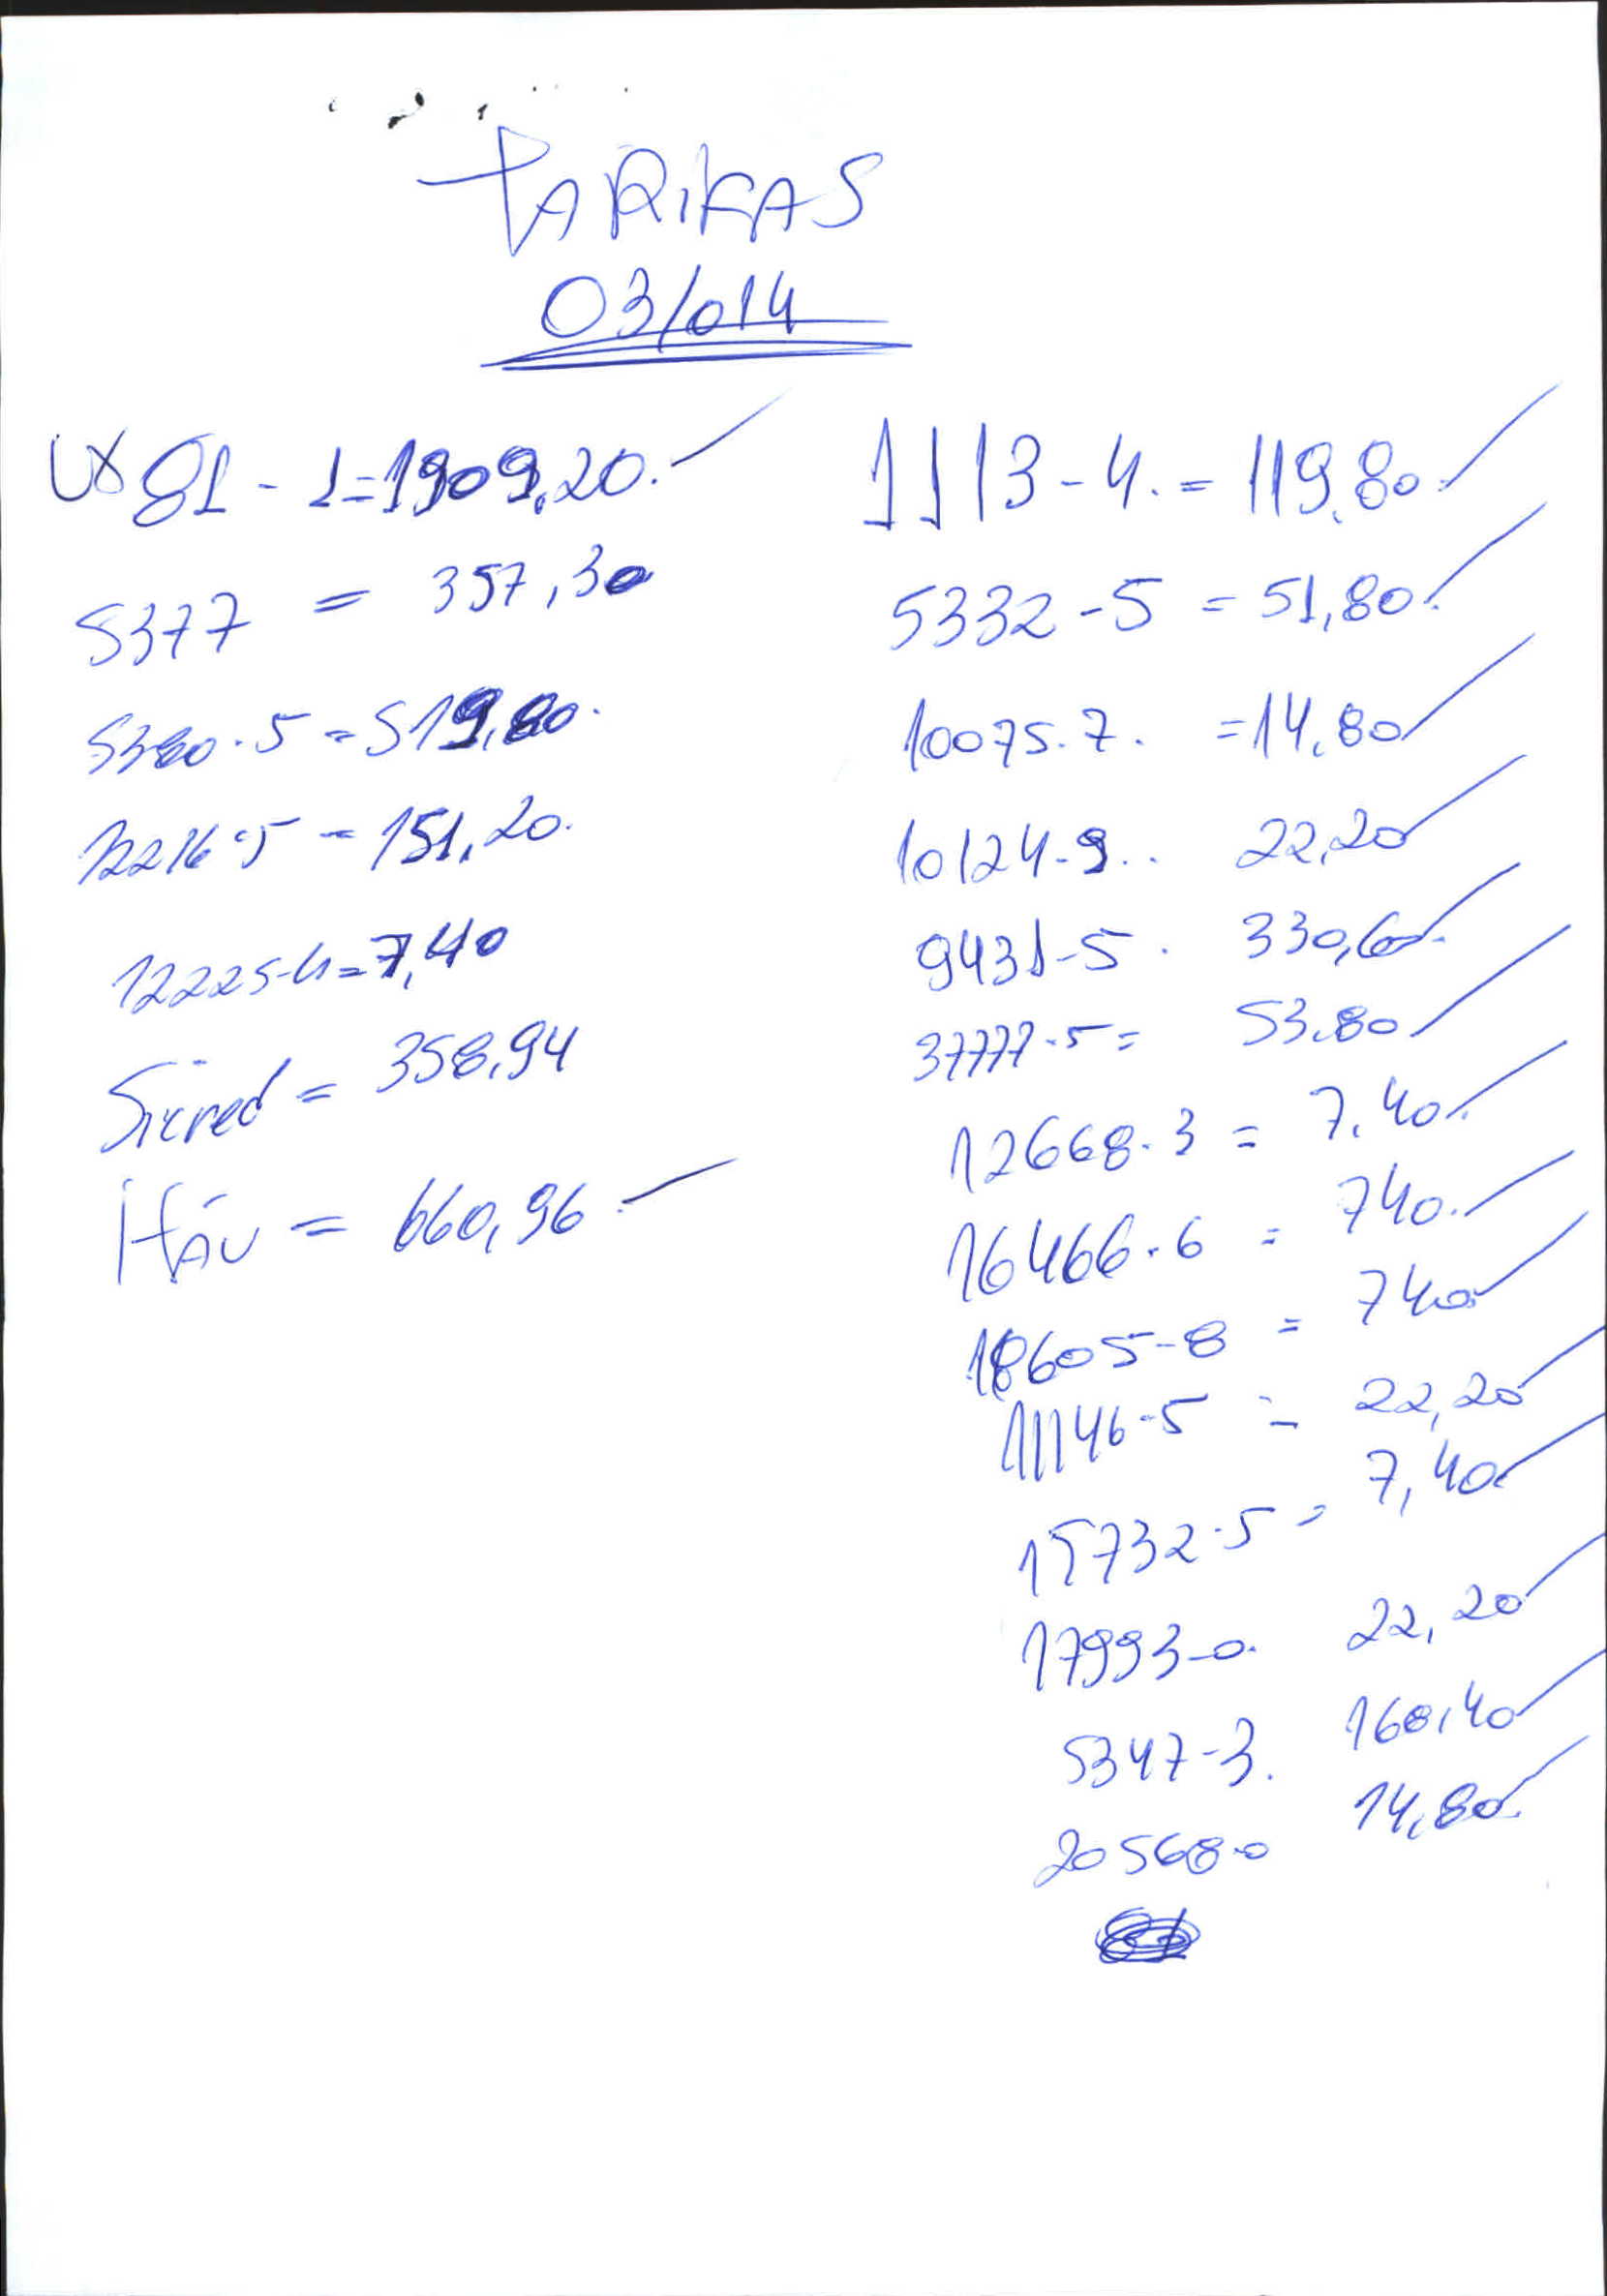 TARIFAS
03/014
81-1=1909,20.
5377 = 357,30
5380.5=519,80.
12216.5 - 151,20.
12225-4=7,40
Sicred = 358,94
ITÁU = 660,96
1113-4. = 119,80.
5332-5 = 51,80.
10075.7. =14,80
10124-9.. 22,20
9431-5. 330,60.
37777.5= 53,80
12668.3 = 7,40.
16466.6 = 740.
18605-8 = 740
11146-5 = 22,20
15732.5 = 7,40
17993-0. 22,20
5347-3. 168,40
20568.0 14,80.